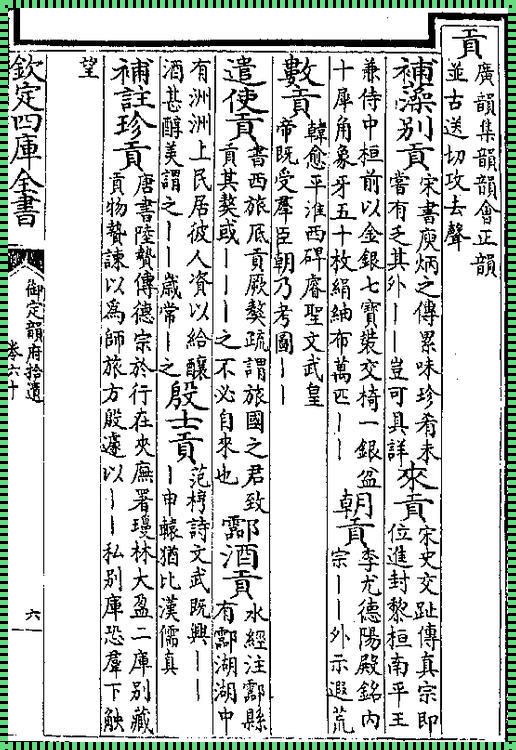 貢
廣韻集韻韻會正韻
並古送切攻去聲
補藻別貢
宋書庾炳之傳累味珍肴未
嘗有乏其外丨丨豈可具詳
來貢
宋史交趾傳真宗即
位進封黎桓南平王
兼侍中桓前以金銀七寶裝交椅一銀盆
十犀角象牙五十枚絹紬布萬匹丨丨
朝貢
李尤德陽殿銘内
宗丨丨外示遐荒
數貢
韓愈平淮西碑睿聖文武皇
帝既受羣臣朝乃考圖丨丨
遣使貢
書西旅厎貢厥獒疏謂旅國之君致
貢其獒或丨丨丨之不必自來也
酃酒貢
水經注酃縣
有酃湖湖中
有洲洲上民居彼人資以給釀
酒甚醇美謂之丨丨歲常丨之
殷士貢
范梈詩文武既興丨丨
丨申轅猶比漢儒真
補註珍貢
唐書陸贄傳德宗於行在夾廡署瓊林大盈二庫別藏
貢物贄諫以爲師旅方殷遽以丨丨私別庫恐羣下觖
望
欽定四庫全書
御定韻府拾遺
卷六十
六